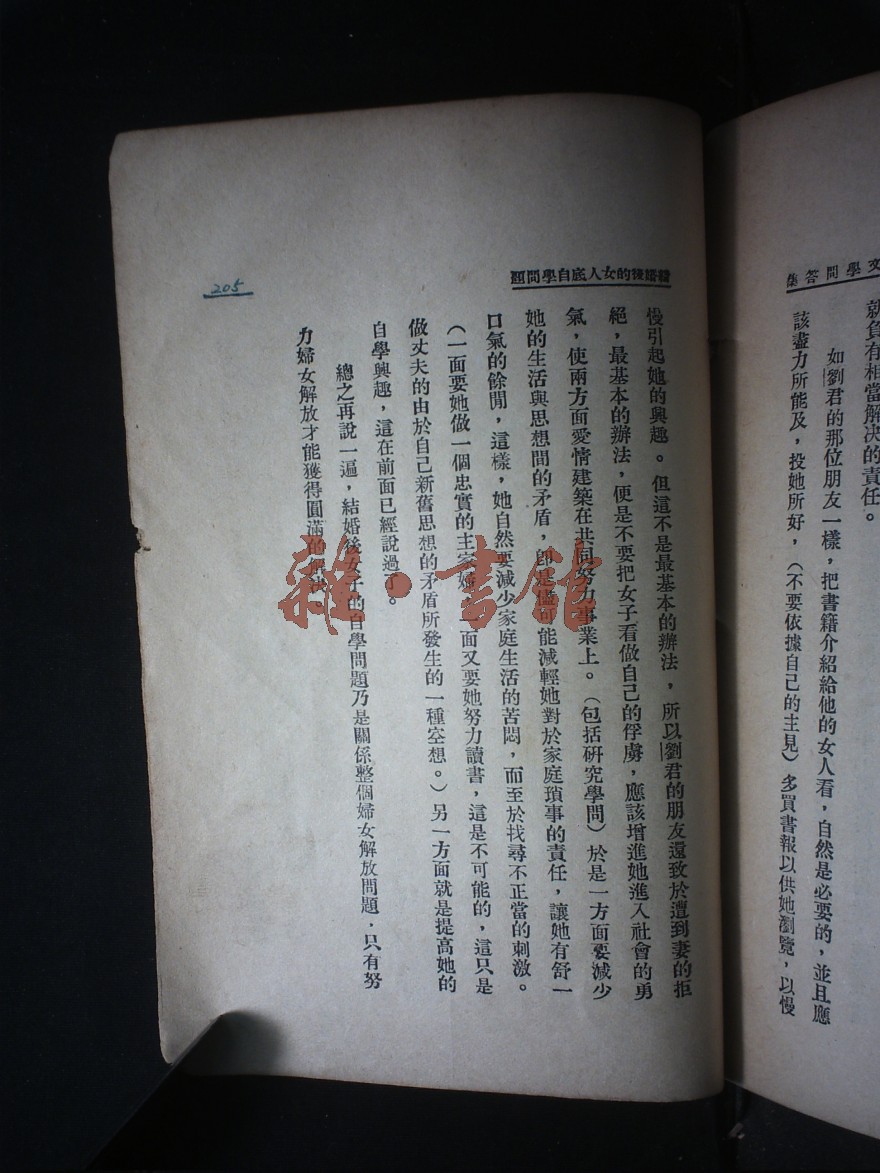 文學問答集
就負有相當解决的責任。
如劉君的那位朋友一樣，把書籍介紹給他的女人看，自然是必要的，並且應
該盡力所能及，投她所好，（不要依據自己的主見）多買書報以供她瀏覽，以慢
結婚後的女人底自學問題
慢引起她的興趣。但這不是最基本的辦法，所以劉君的朋友還致於遭到妻的拒
絕，最基本的辦法，便是不要把女子看做自己的俘虜，應該增進她進入社會的勇
氣，使兩方面愛情建築在共同努力事業上。（包括研究學問）於是一方面要減少
她的生活與思想間的矛盾，卽是儘可能減輕她對於家庭瑣事的責任，讓她有舒一
口氣的餘閒，這樣，她自然要減少家庭生活的苦悶，而至於找尋不正當的刺激。
（一面要她做一個忠實的主家婦，一面又要她努力讀書，這是不可能的，這只是
做丈夫的由於自己新舊思想的矛盾所發生的一種空想。）另一方面就是提高她的
自學興趣，這在前面已經說過了。
總之再說一遍，結婚後女子的自學問題乃是關係整個婦女解放問題，只有努
力婦女解放才能獲得圓滿的解決
205
雜·書館